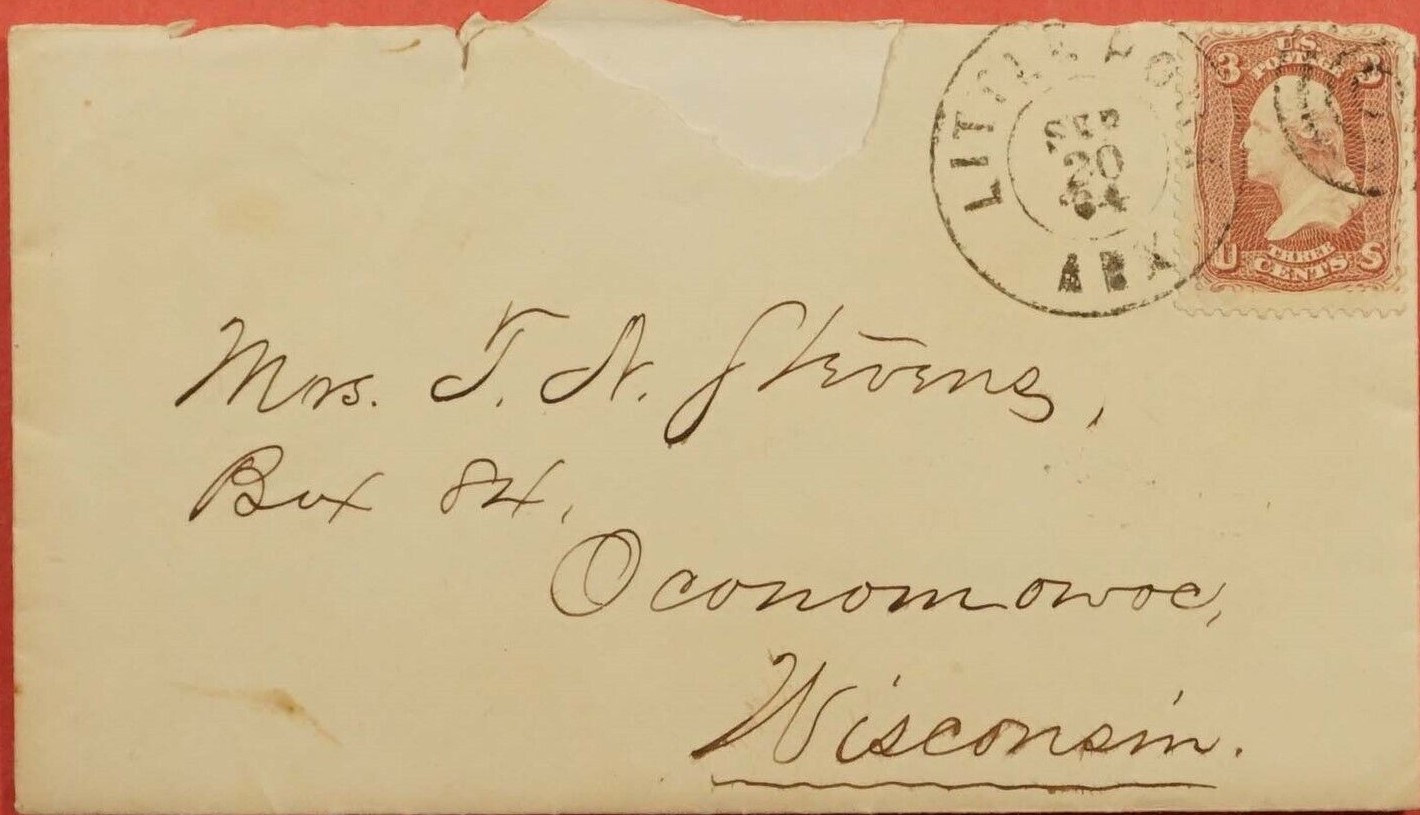 LITTLE ROCK
SEP
20
64
ARK
U.S.
POSTAGE
3 3
THREE
U CENTS S
Mrs. T. N. Stevens,
Box 84,
Oconomowoc,
Wisconsin.